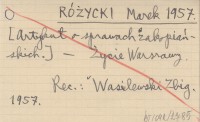 RÓŻYCKI Marek 1957.
[Artykuł o sprawach zakopiań-
skich.] – Życie Warszawy
Rec.: Wasilewski Zbig.
1957.